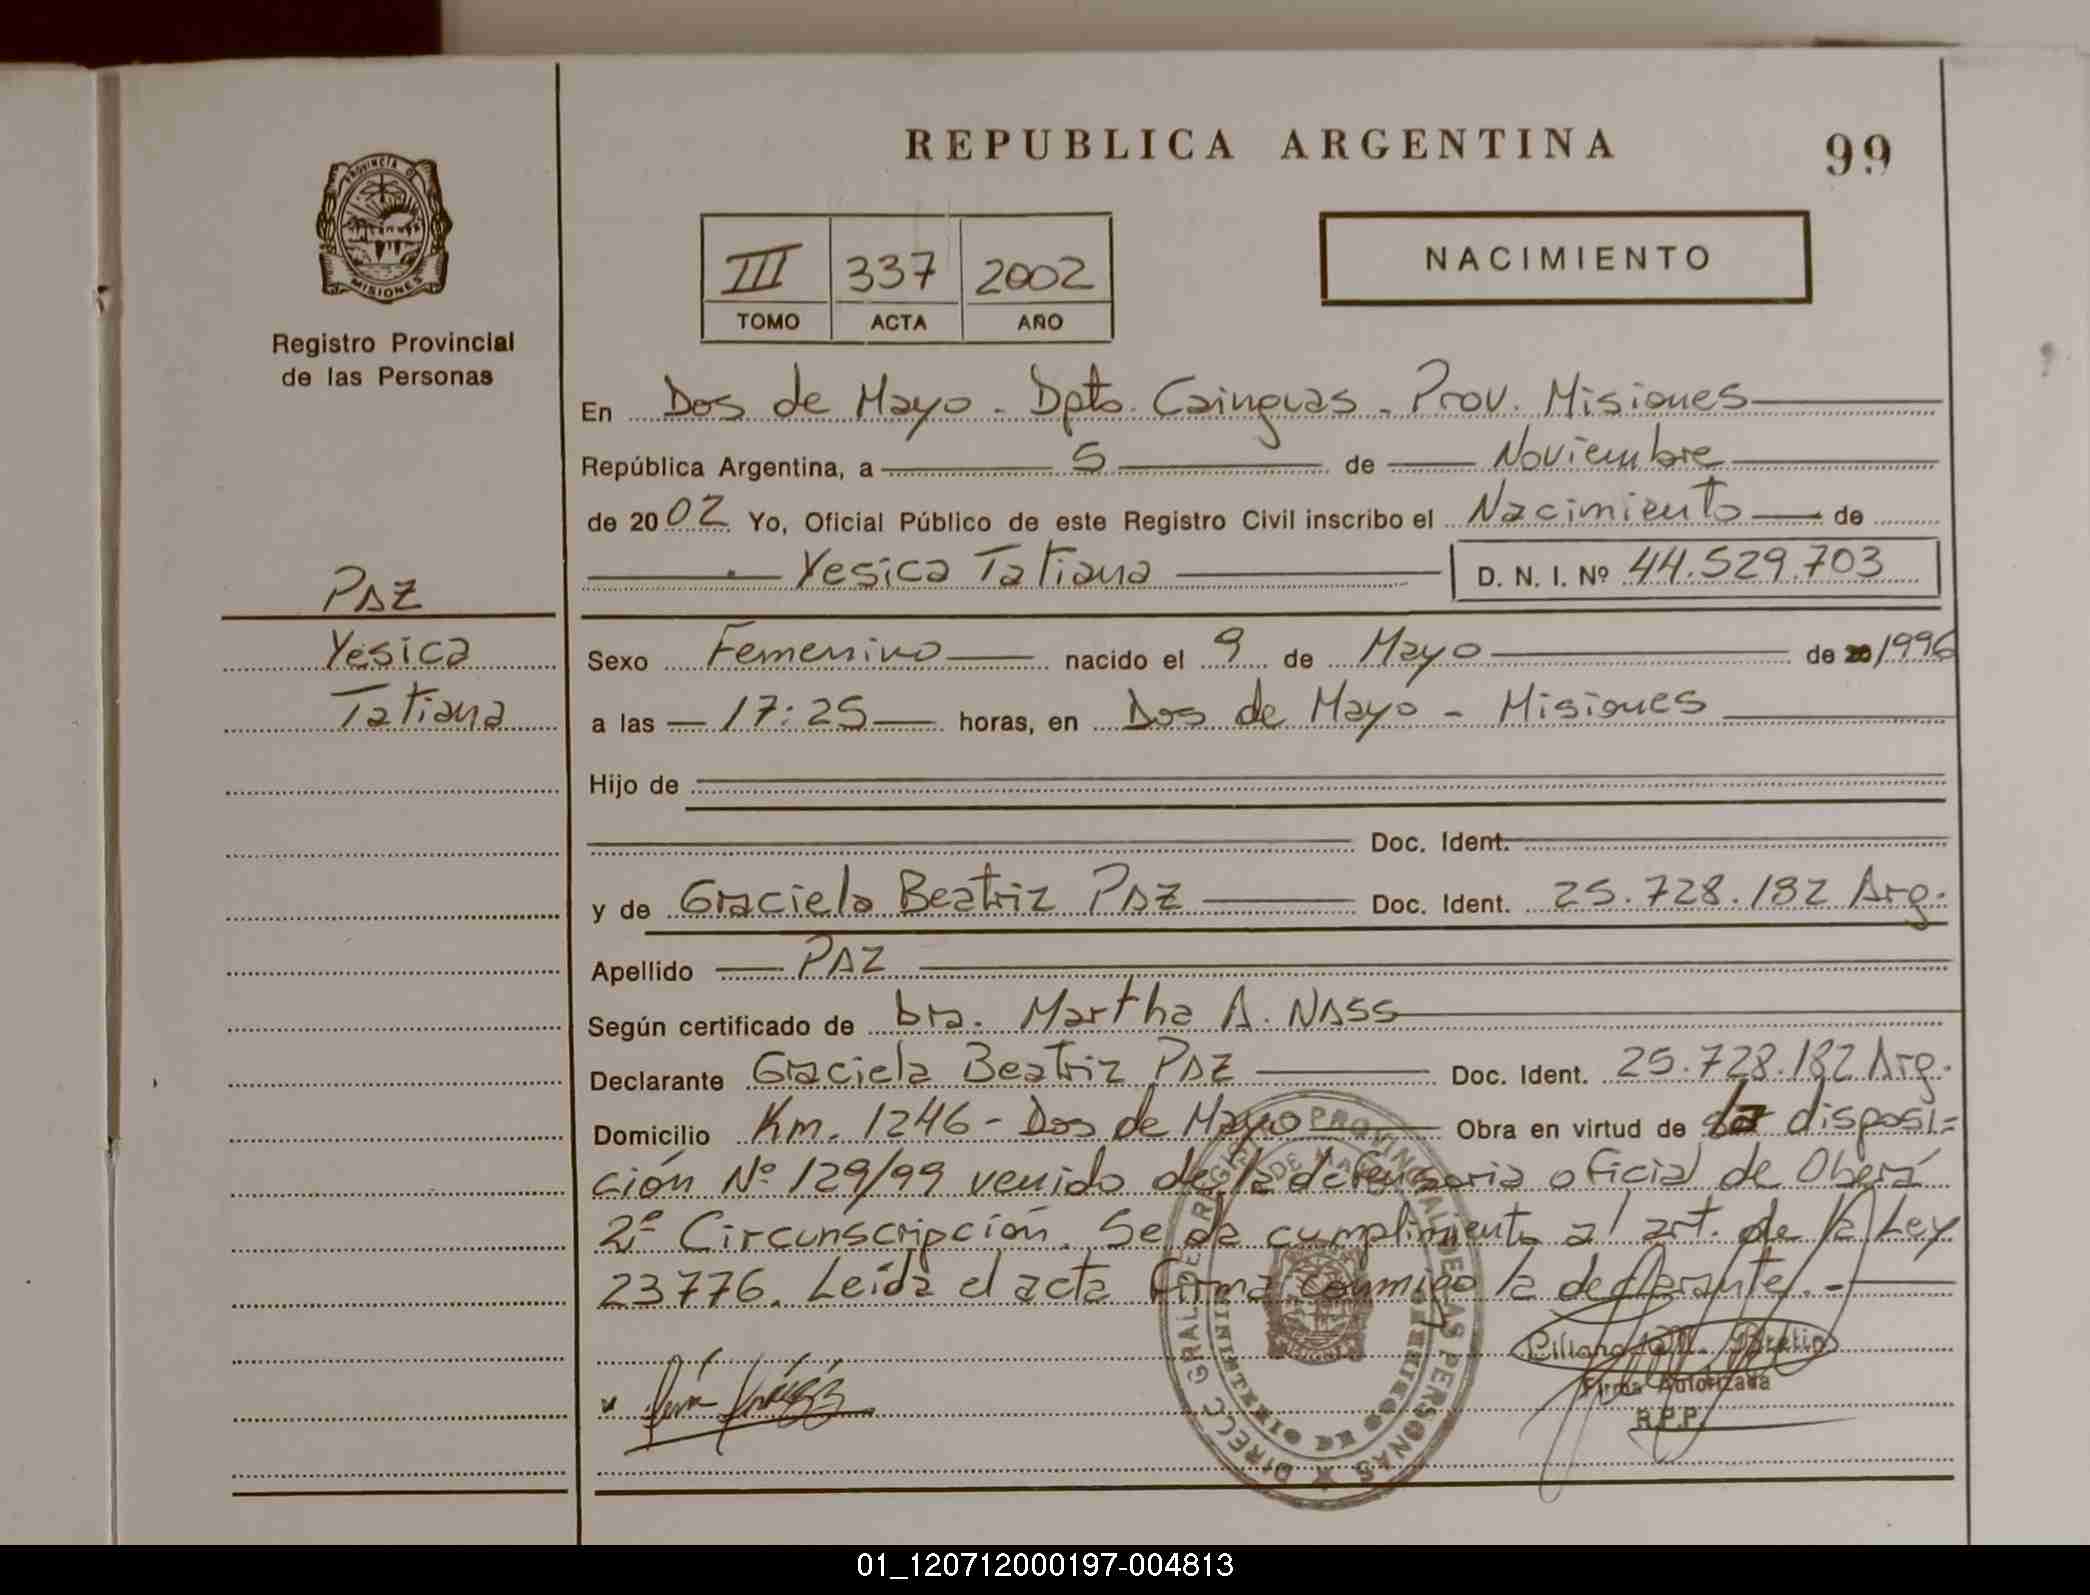 REPUBLICA ARGENTINA
99
PROVINCIA DE
MISIONES
Registro Provincial
de las Personas
III 337 2002
TOMO ACTA AÑO
NACIMIENTO
En Dos de Mayo - Dpto. Cainguas - Prov. Misiones
República Argentina, a 5 de Noviembre
de 2002 Yo, Oficial Público de este Registro Civil inscribo el Nacimiento de
Yesica Tatiana D. N. I. Nº 44.529.703
PAZ
Yesica
Tatiana
Sexo Femenino nacido el 9 de Mayo de 20 1996
a las 17:25 horas, en Dos de Mayo - Misiones
Hijo de
Doc. Ident.
y de Graciela Beatriz PAZ Doc. Ident. 25.728.182 Arg.
Apellido PAZ
Según certificado de Dra. Martha A. NASS
Declarante Graciela Beatriz PAZ Doc. Ident. 25.728.182 Arg.
Domicilio Km. 1246 - Dos de Mayo Obra en virtud de la disposi=
ción Nº 129/99 venido de la defensoria oficial de Oberá
2º Circunscripción. Se da cumplimiento al art. de la Ley
23776. Leida el acta firma conmigo la declarante. -
DIRECC GRAL DE REGISTRO PROVINCIAL DE LAS PERSONAS
MINISTERIO DE GOBIERNO
Firma Autorizada
R.P.P.
01_120712000197-004813